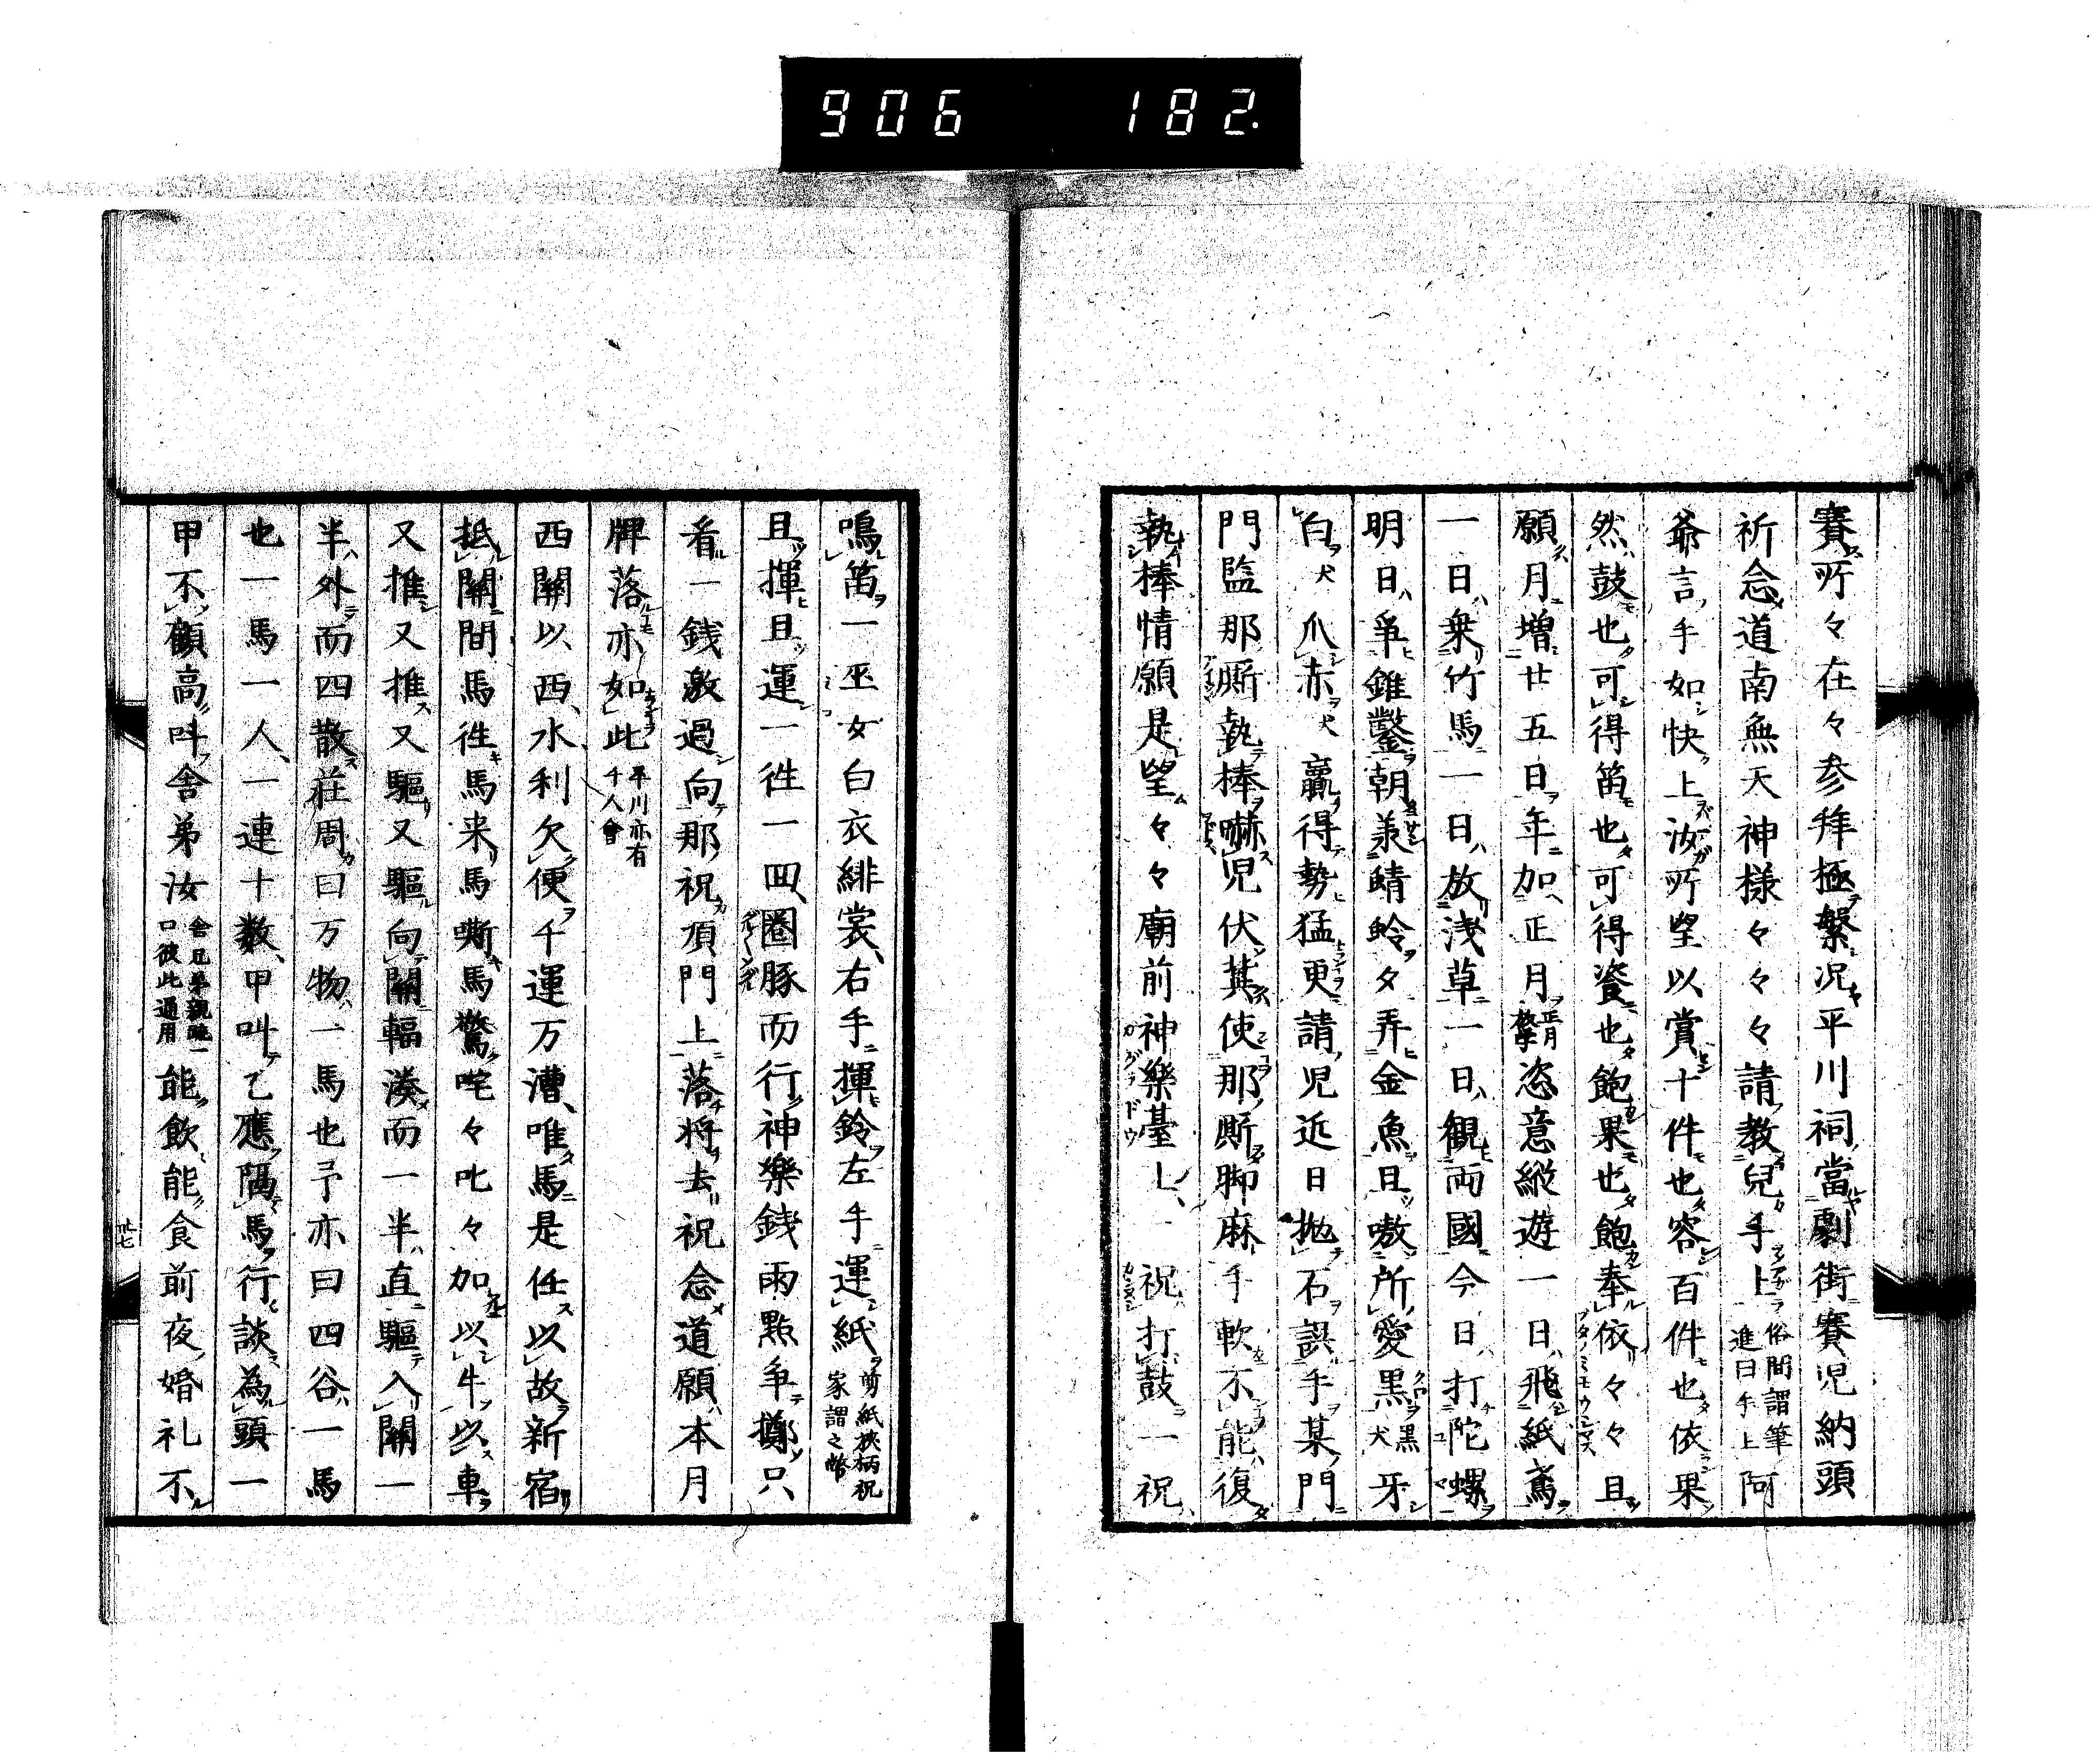 906 182.
賽所々在々参拜極繁况平川祠當劇街賽児納頭
祈念道南無天神様々々々請教兒手上俗間謂筆進曰手上阿
爺言手如快上汝所望以賞十件也容百件也依果
然鼓也可得笛也可得瓷也飽果也飽奉依々々且
願月増廿五日年加正月恣意縱遊一日飛紙鳶
一日乗竹馬一日放浅草一日観両國今日打陀螺
明日爭錐鑿朝羨蜻蛉夕弄金魚且嗷所愛黒犬黒牙
白犬爪赤犬贏得勢猛更請児近日抛石誤手某門
門監那厮執棒嚇児伏冀使那厮脚麻手軟不能復
執棒情願是望々々廟前神樂臺上一祝打鼓一祝
鳴笛一巫女白衣緋裳右手揮鈴左手運紙剪紙挾柄祝家謂之幣
且揮且運一徃一回圏豚而行神樂銭雨點争擲只
看一銭激過向那祝頂門上落将去祝念道願本月
牌落亦如此平川亦有千人會
西關以西水利欠便千運万漕唯馬是任以故新宿
抵關間馬徃馬来馬嘶馬驚咤々叱々加以牛以車
又推又推又驅又驅向關輻湊而一半直驅入關一
半外而四散荘周曰万物一馬也予亦曰四谷一馬
也一馬一人一連十数甲叫乙應隔馬行談為頭一
甲不顧高呌舎弟汝舎兄弟親睦一口彼此通用能飲能食前夜婚礼不
廿七